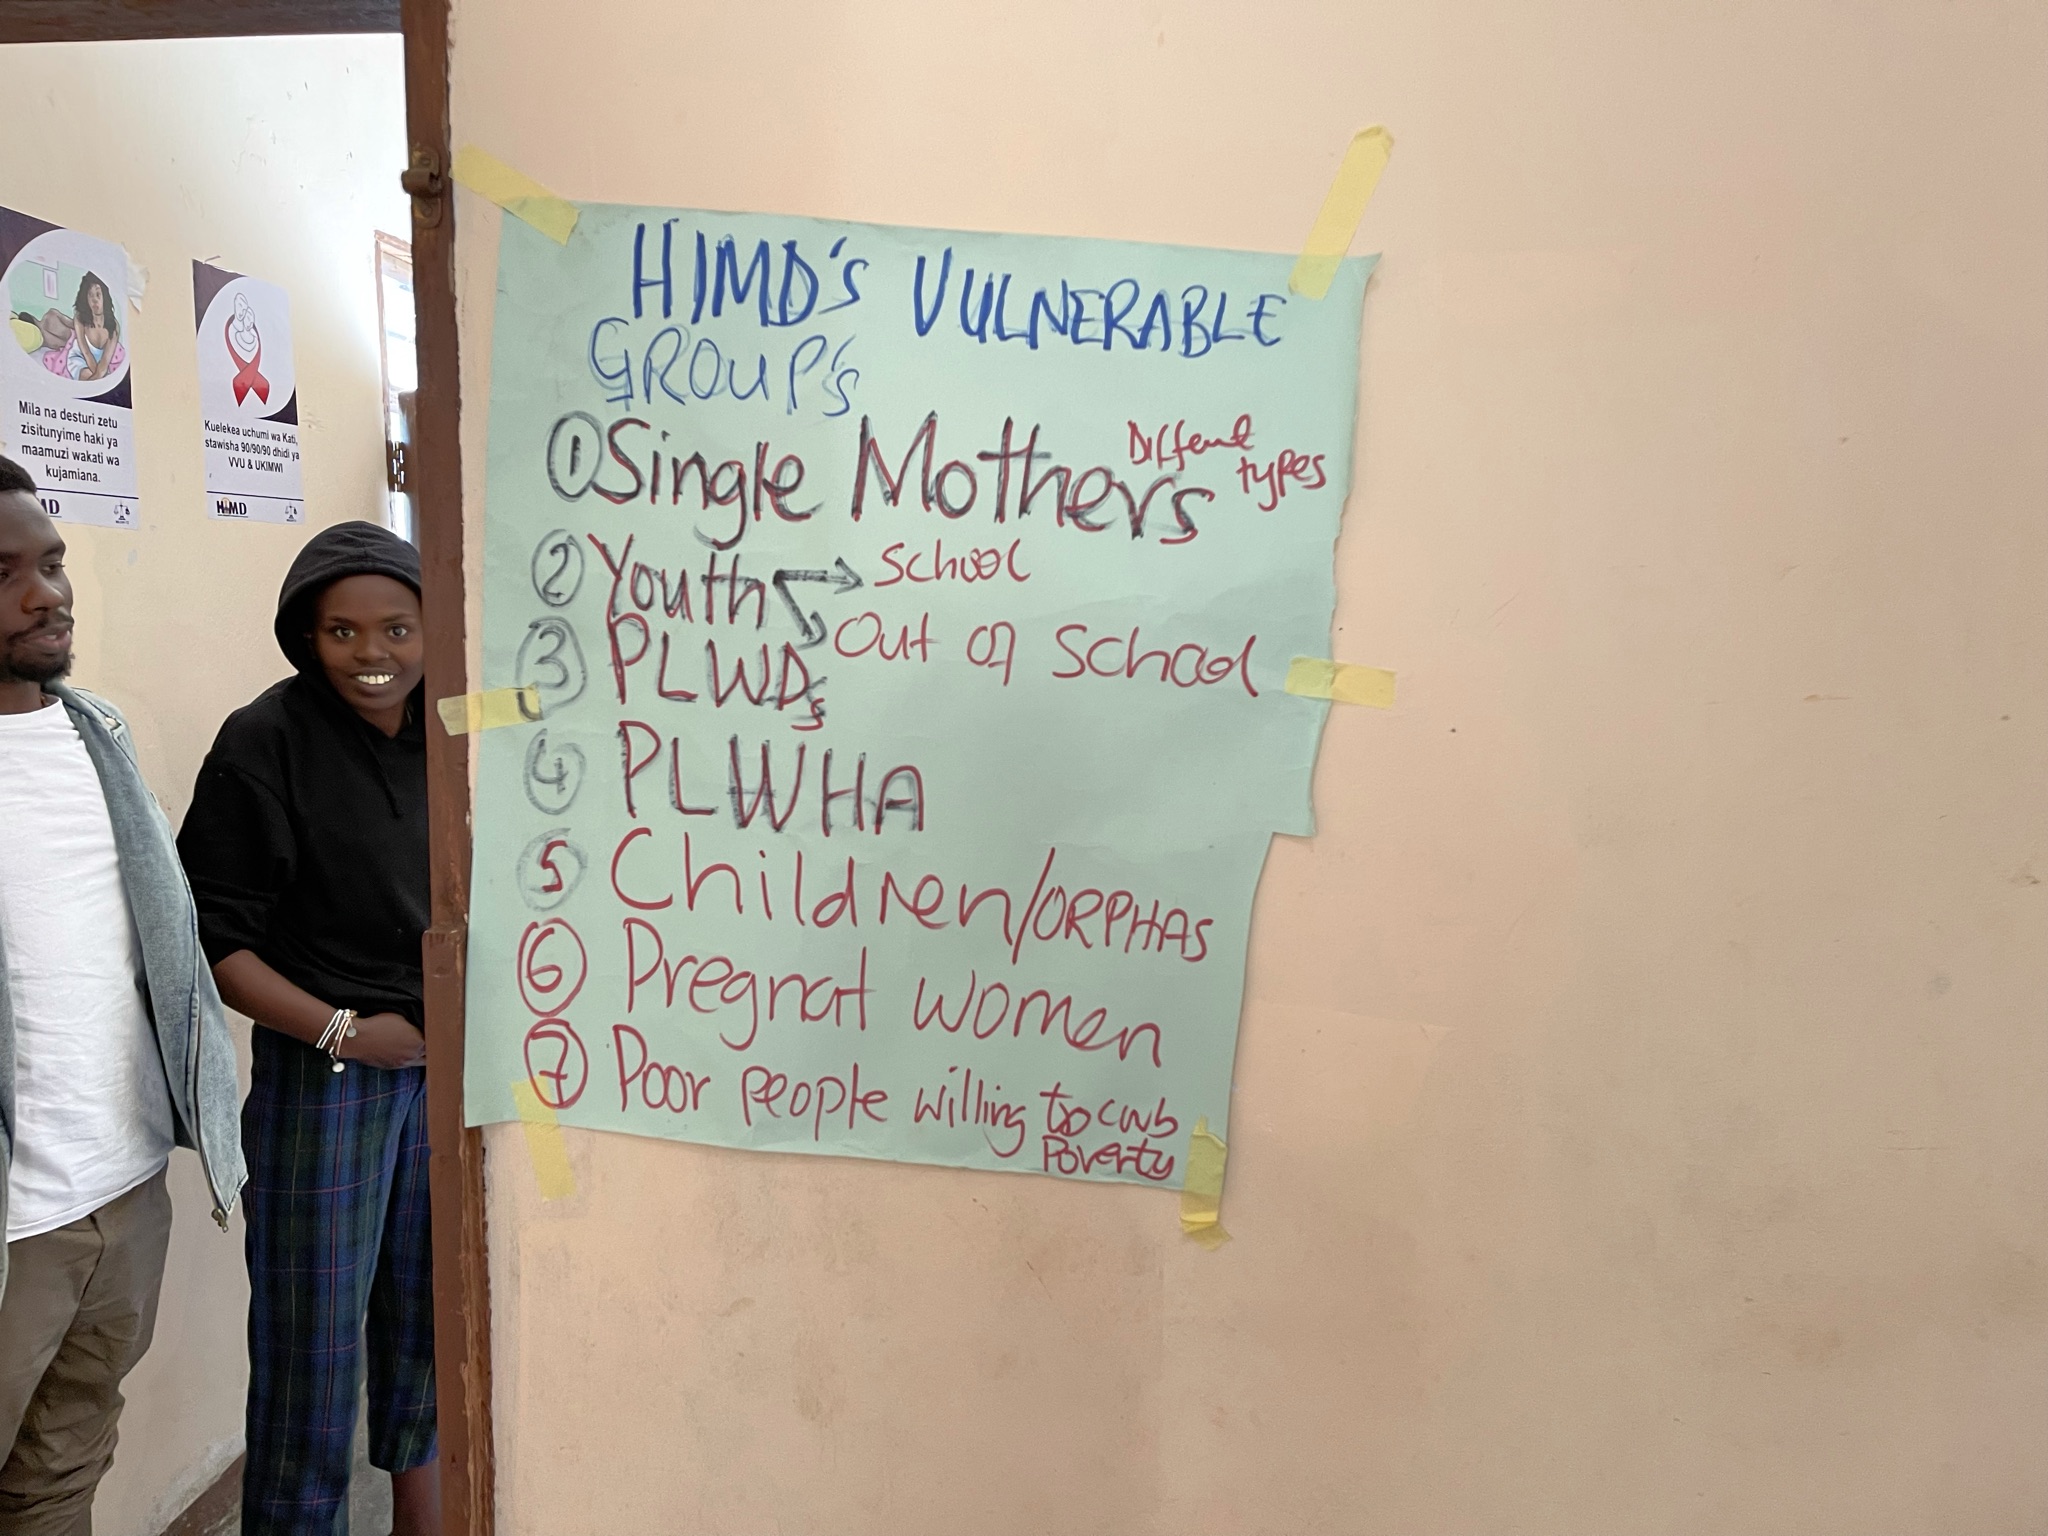 HIMD's VULNERABLE
GROUP's
① Single Mothers Different types
② Youth → School
Out of School
③ PLWDs
④ PLWHA
⑤ Children/ORPHAS
⑥ Pregnat women
⑦ Poor people willing to curb
Poverty
Mila na desturi zetu
zisitunyime haki ya
maamuzi wakati wa
kujamiana.
MD
Kuelekea uchumi wa Kati,
stawisha 90/90/90 dhidi ya
VVU & UKIMWI
HIMD